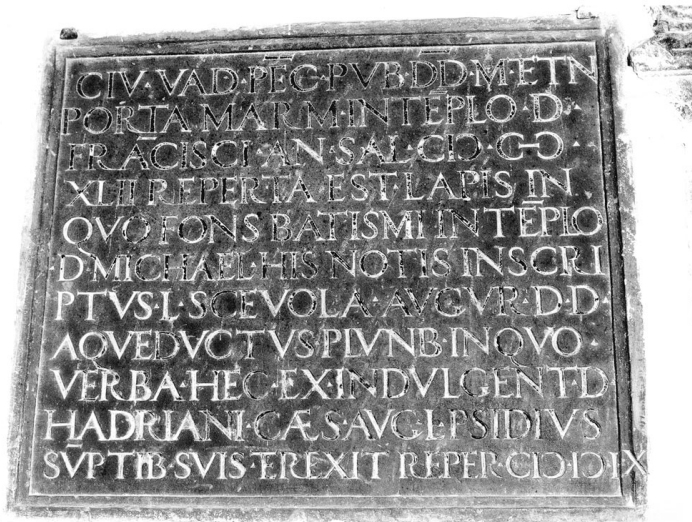 CIV·VAD·PĒC·PVB·D̄D̄·M·ET·N
PORTA·MARM·IN·TĒPLO·D·
FRĀCISCI·AN·SAL·CIↃ·C-Ↄ·
XLII REPERTA EST·LAPIS·IN
QVO·FONS·BATISMI·IN TĒPLO
·D·MICHAEL·HIS NOTIS·INSCRI
PTVS·L·SCEVOLA·AVGVR·D·D·
AQVEDVCTVS·PLVNB·IN·QVO·
VERBA·HEC·EX·INDVLGENT·D
HADRIANI·CÆS·AVG·L·PSIDIVS
SV̄PTIB·SVIS·EREXIT REPER·CIↃ·IↃ·IX